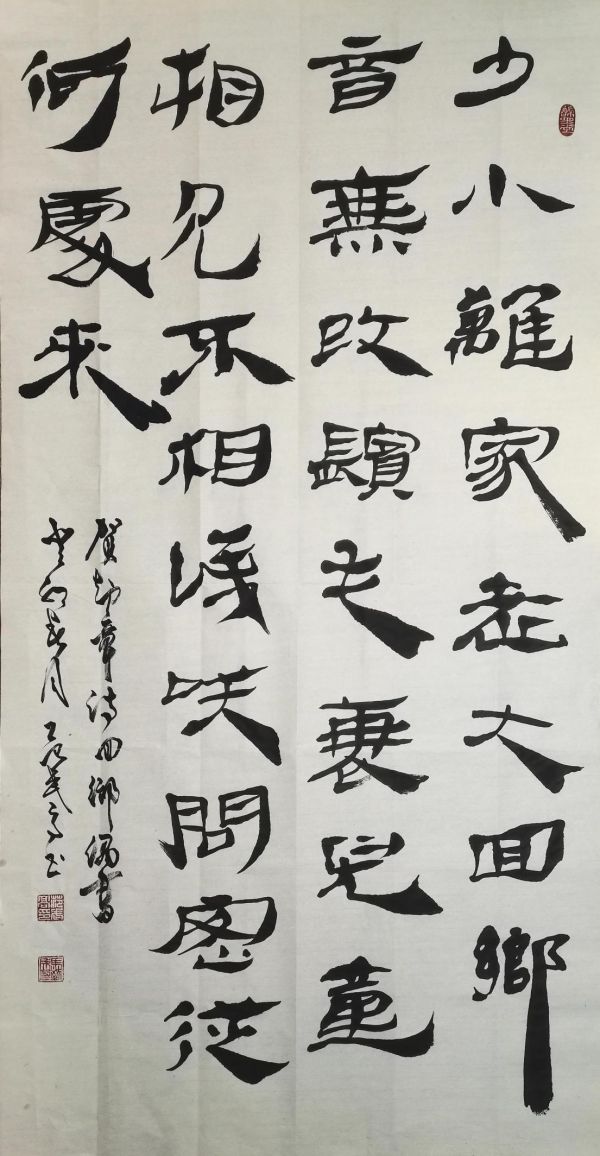 少小離家老大回鄉
音無改鬢毛衰兒童
相見不相識咲問客從
何處來
賀知章詩回鄉偶書
癸卯春月 书